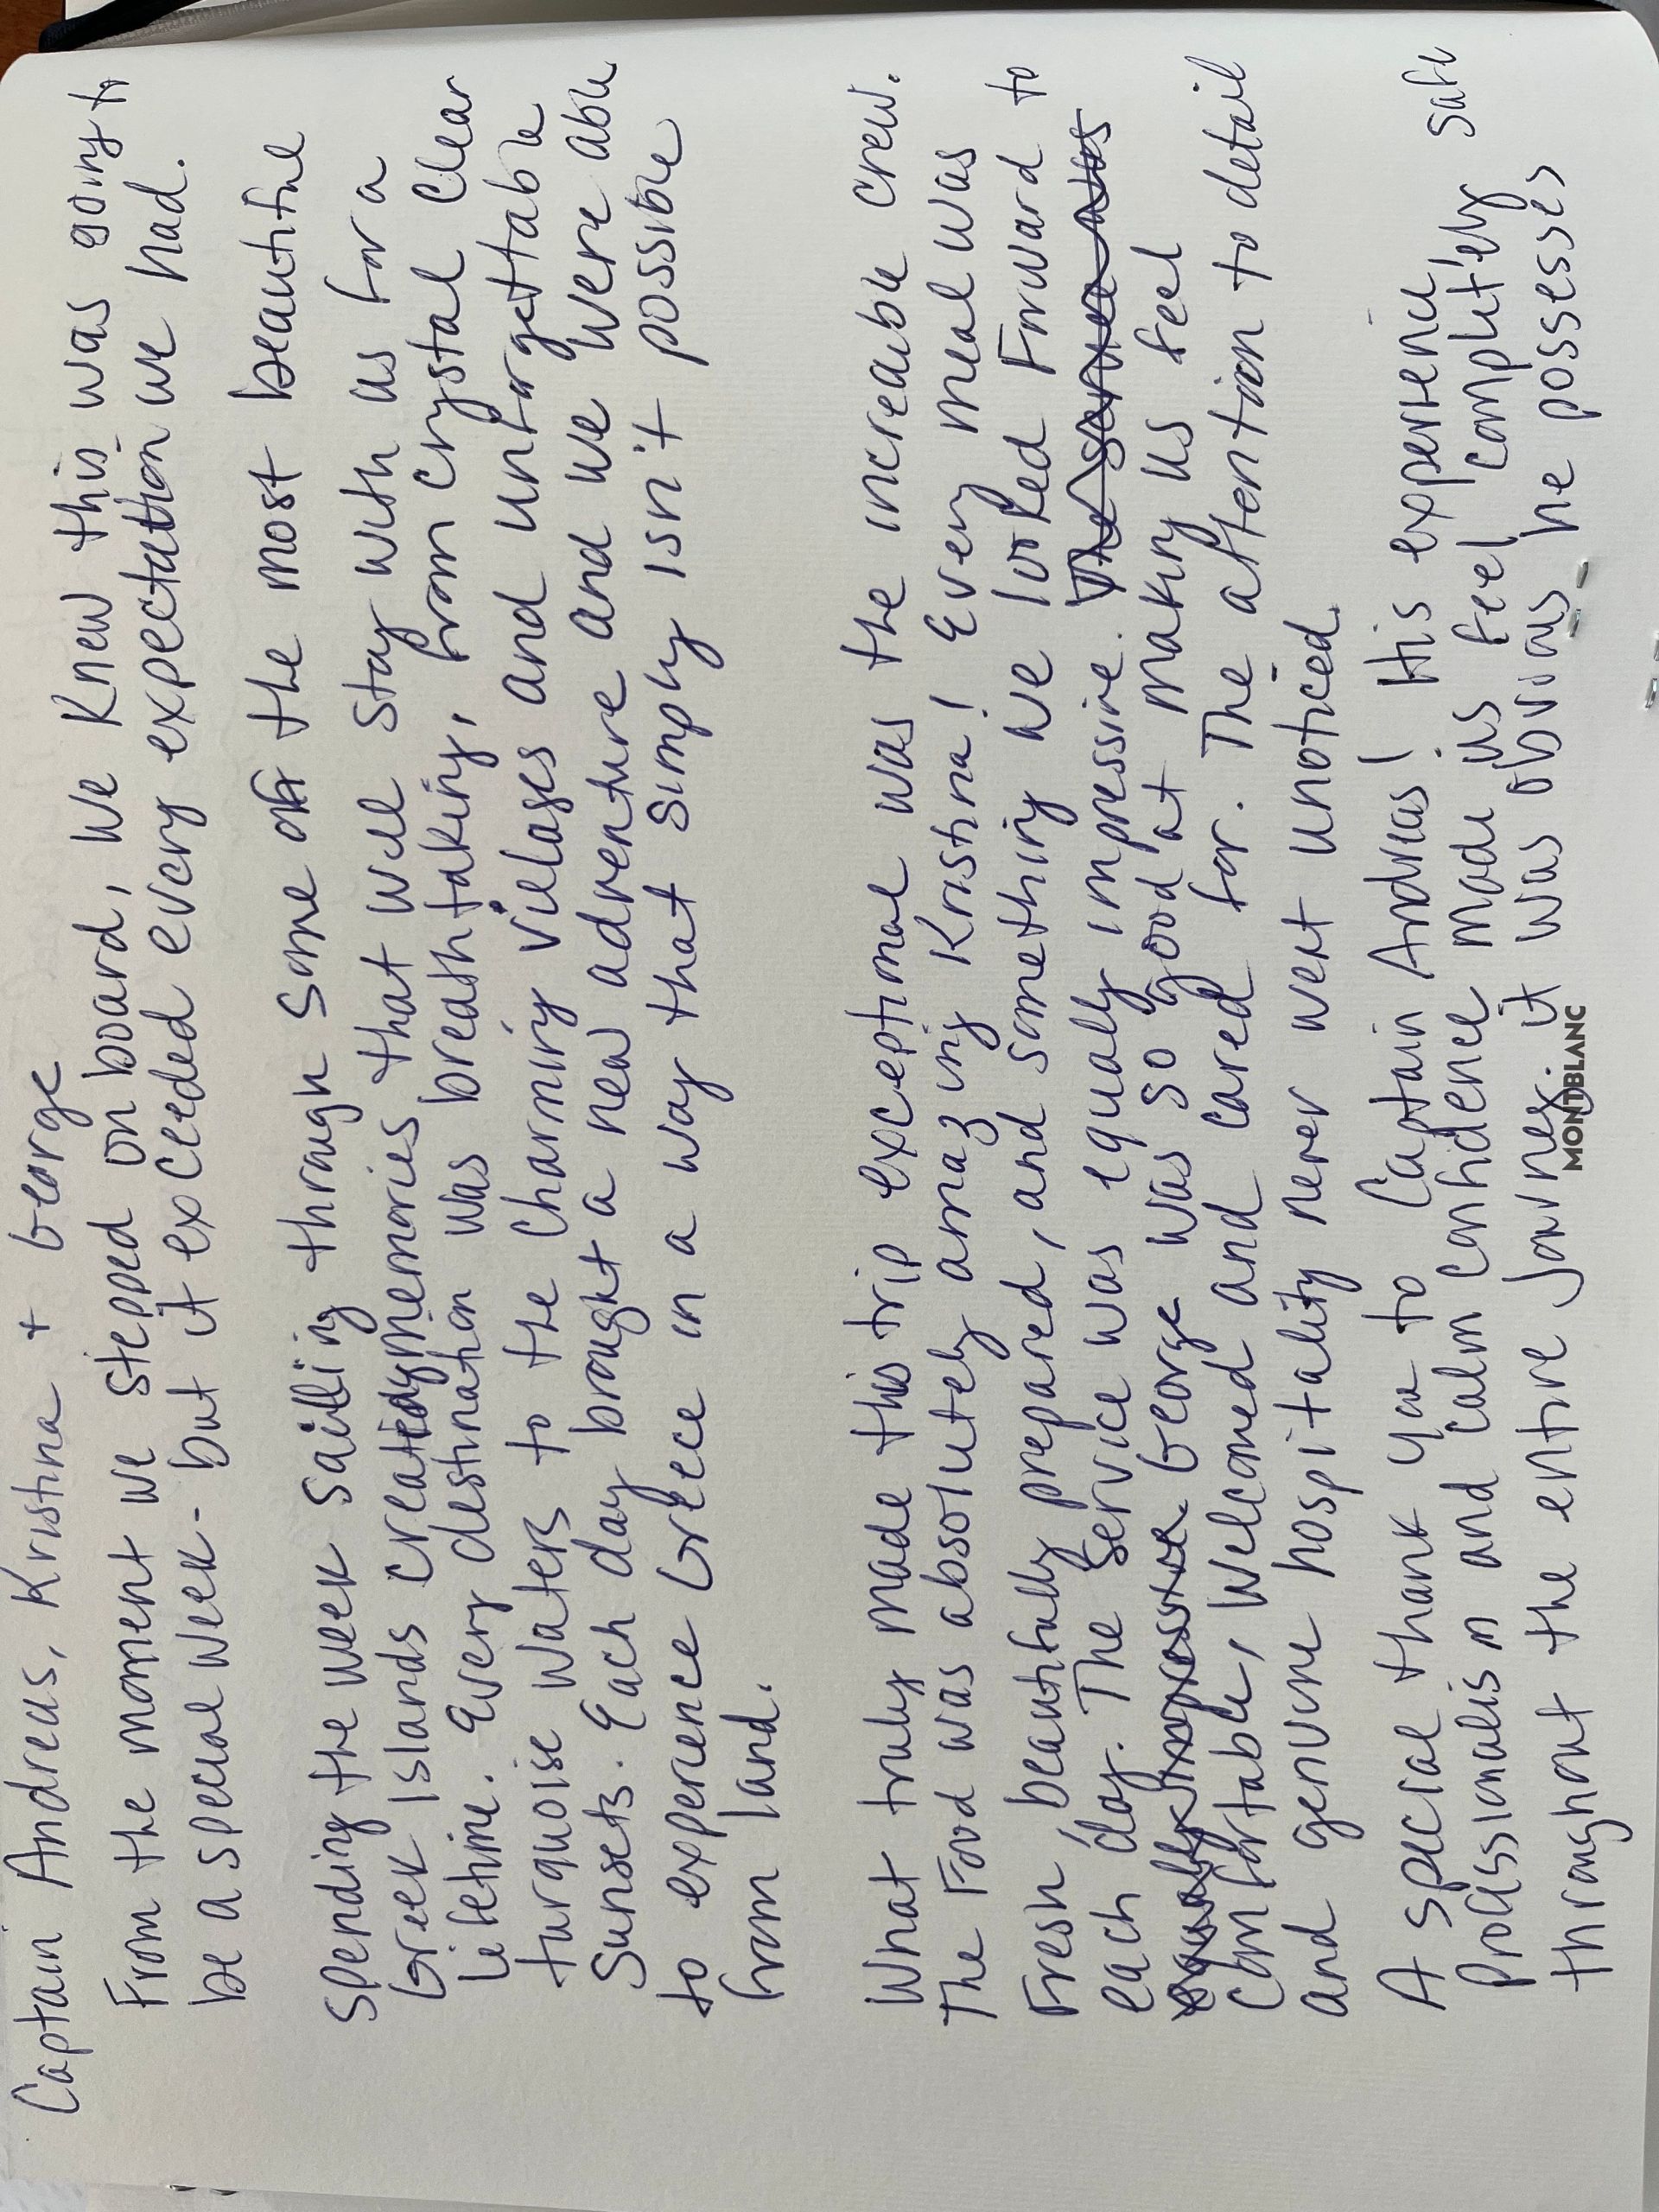 Captain Andreas, Kristina + George
From the moment we stepped on board, we knew this was going to
be a special week - but it exceeded every expectation we had.
Spending the week sailing through some of the most beautiful
Greek Islands created memories that will stay with us for a
lifetime. Every destination was breathtaking, from crystal clear
turquoise waters to the charming villages and unforgettable
sunsets. Each day brought a new adventure and we were able
to experience Greece in a way that simply isn't possible
from land.
What truly made this trip exceptional was the increable crew.
The Food was absolutely amazing Kristina! Every meal was
Fresh, beautifully prepared, and something we looked Forward to
each day. The Service was equally impressive. The service was
equally impressive George was so good at making us feel
comfortable, welcomed and cared for. The attention to detail
and genuine hospitality never went unnoticed.
A special thank you to Captain Andreas! His experience,
Professionalism and calm confidence made us feel completely safe
throughout the entire journey. it was obvious he possesses
MONTBLANC